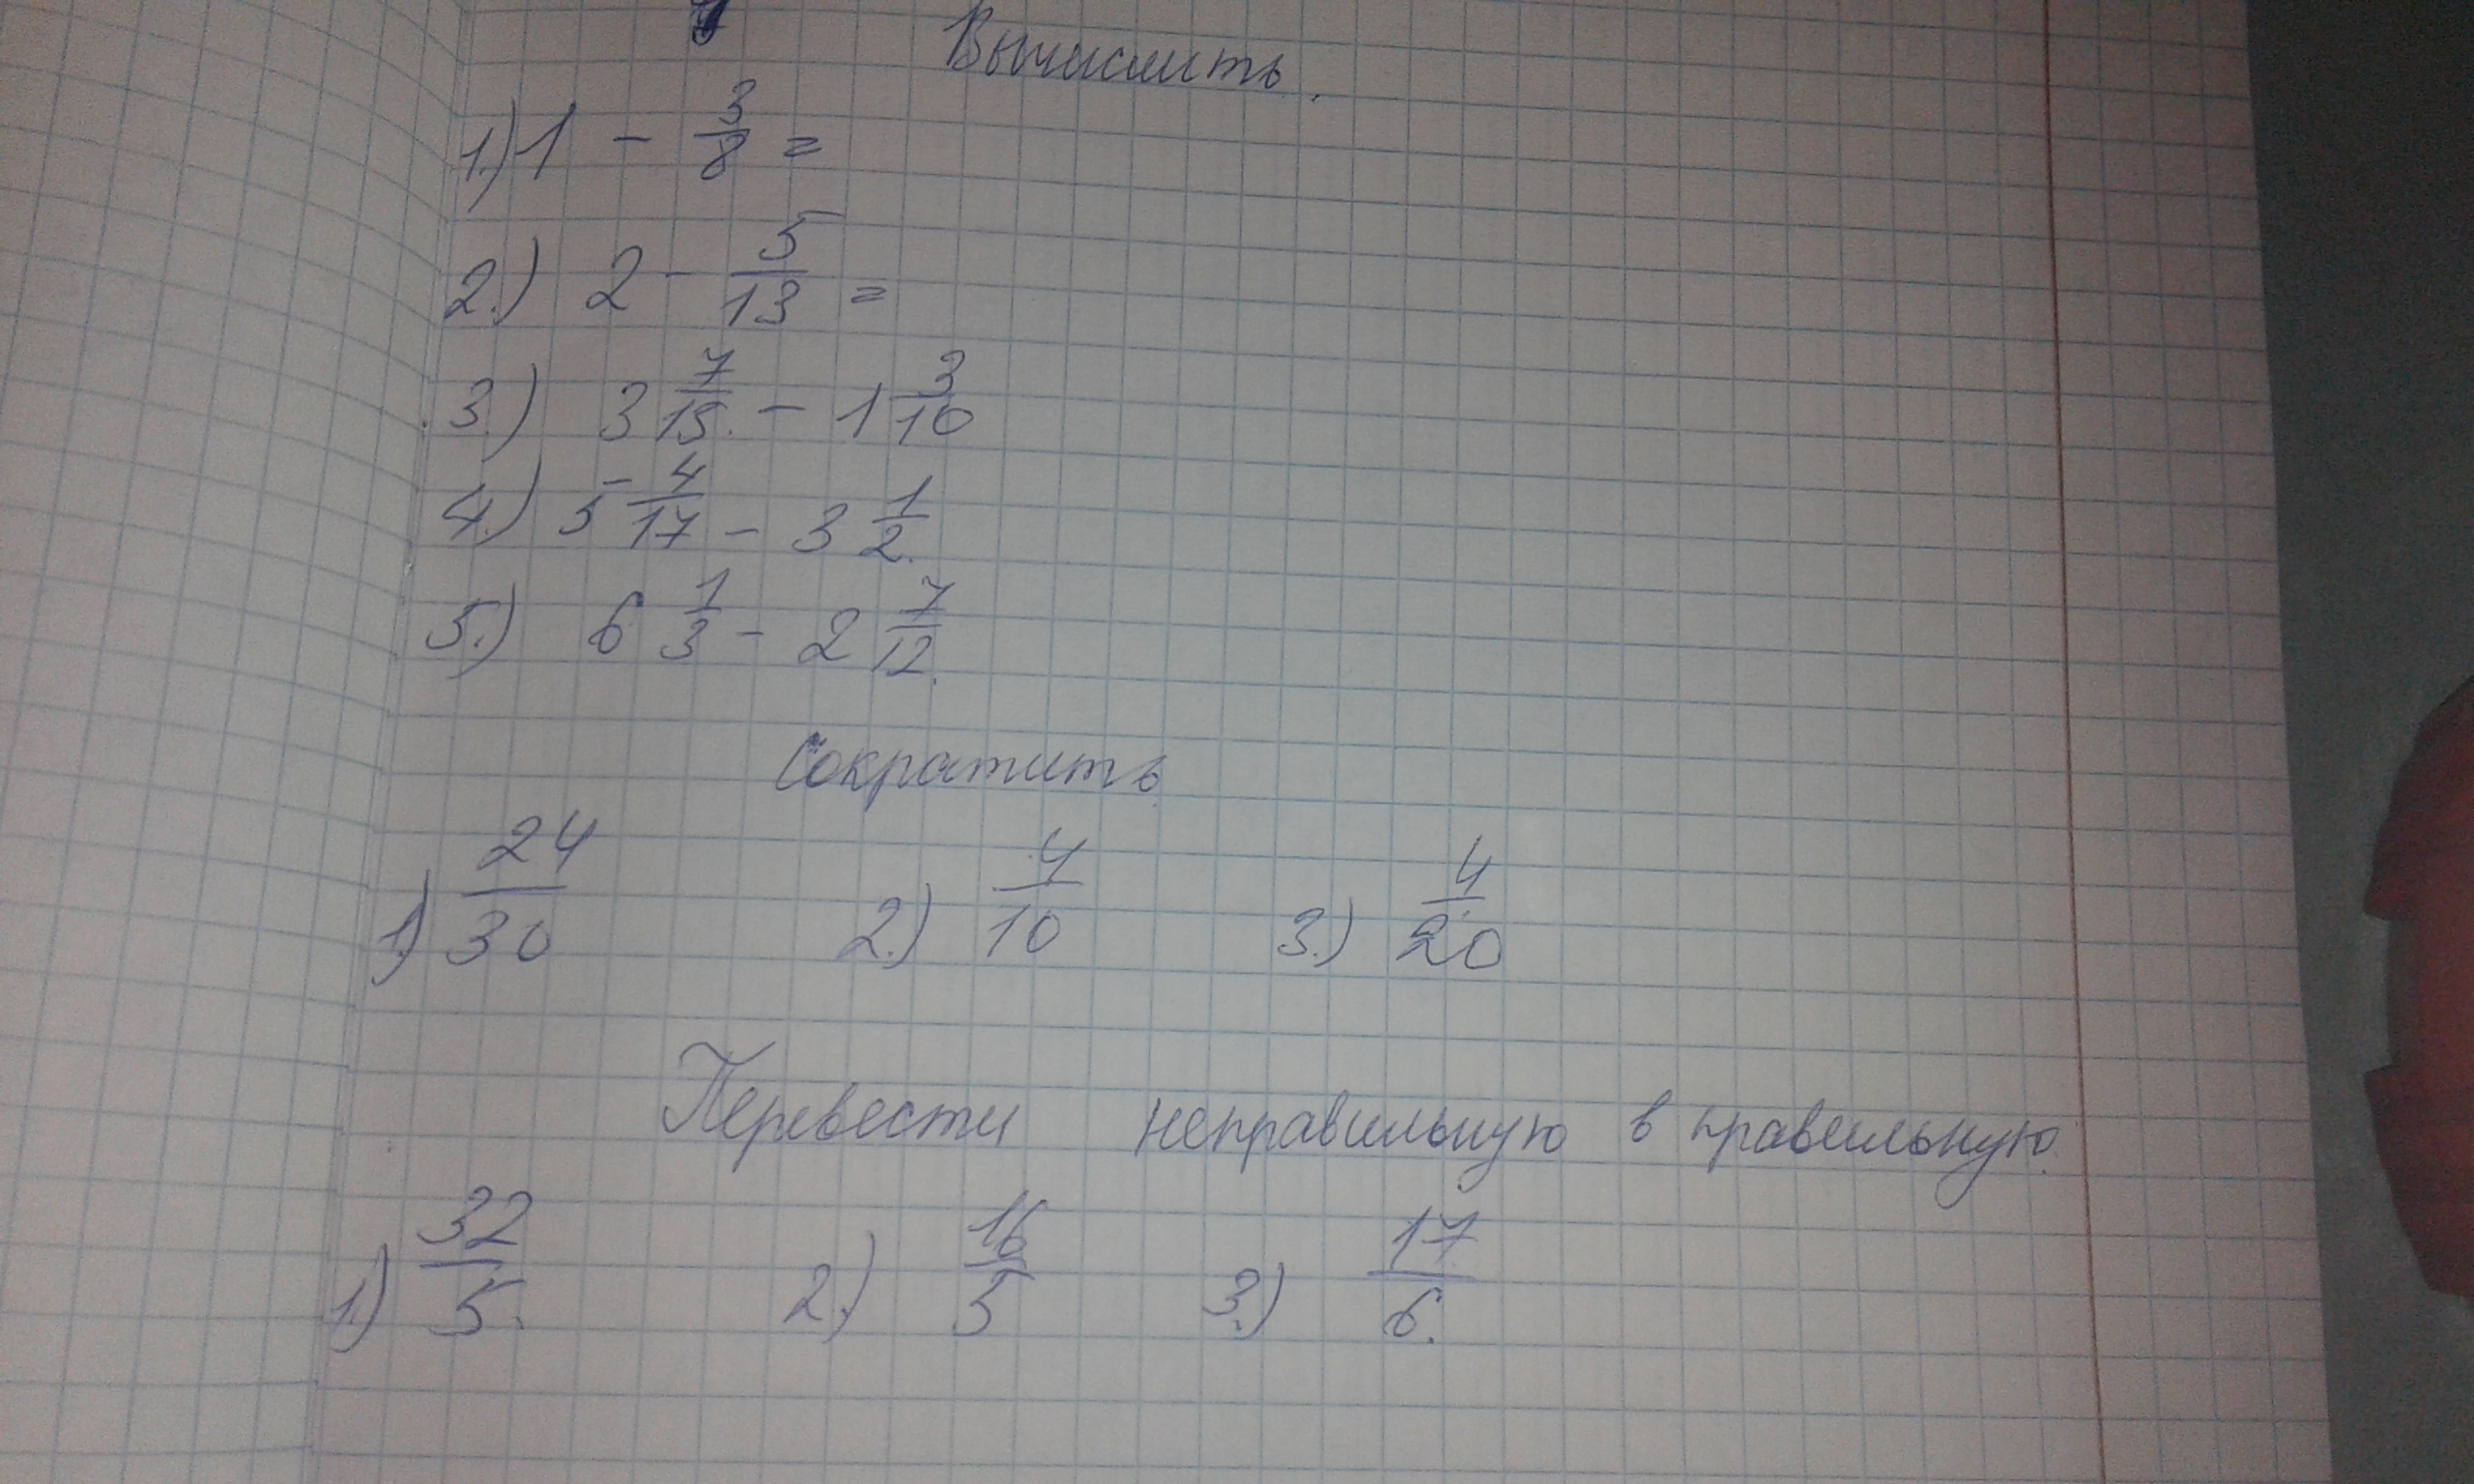 Вычислить.
1.) 1 - 3/8 =
2.) 2 - 5/13 =
3.) 3 7/15 - 1 3/10
4.) 5 4/17 - 3 1/2
5.) 6 1/3 - 2 7/12
Сократить
1) 24/30 2.) 4/10 3.) 4/20
Перевести неправильную в правильную.
1.) 32/5 2.) 16/5 3.) 17/6